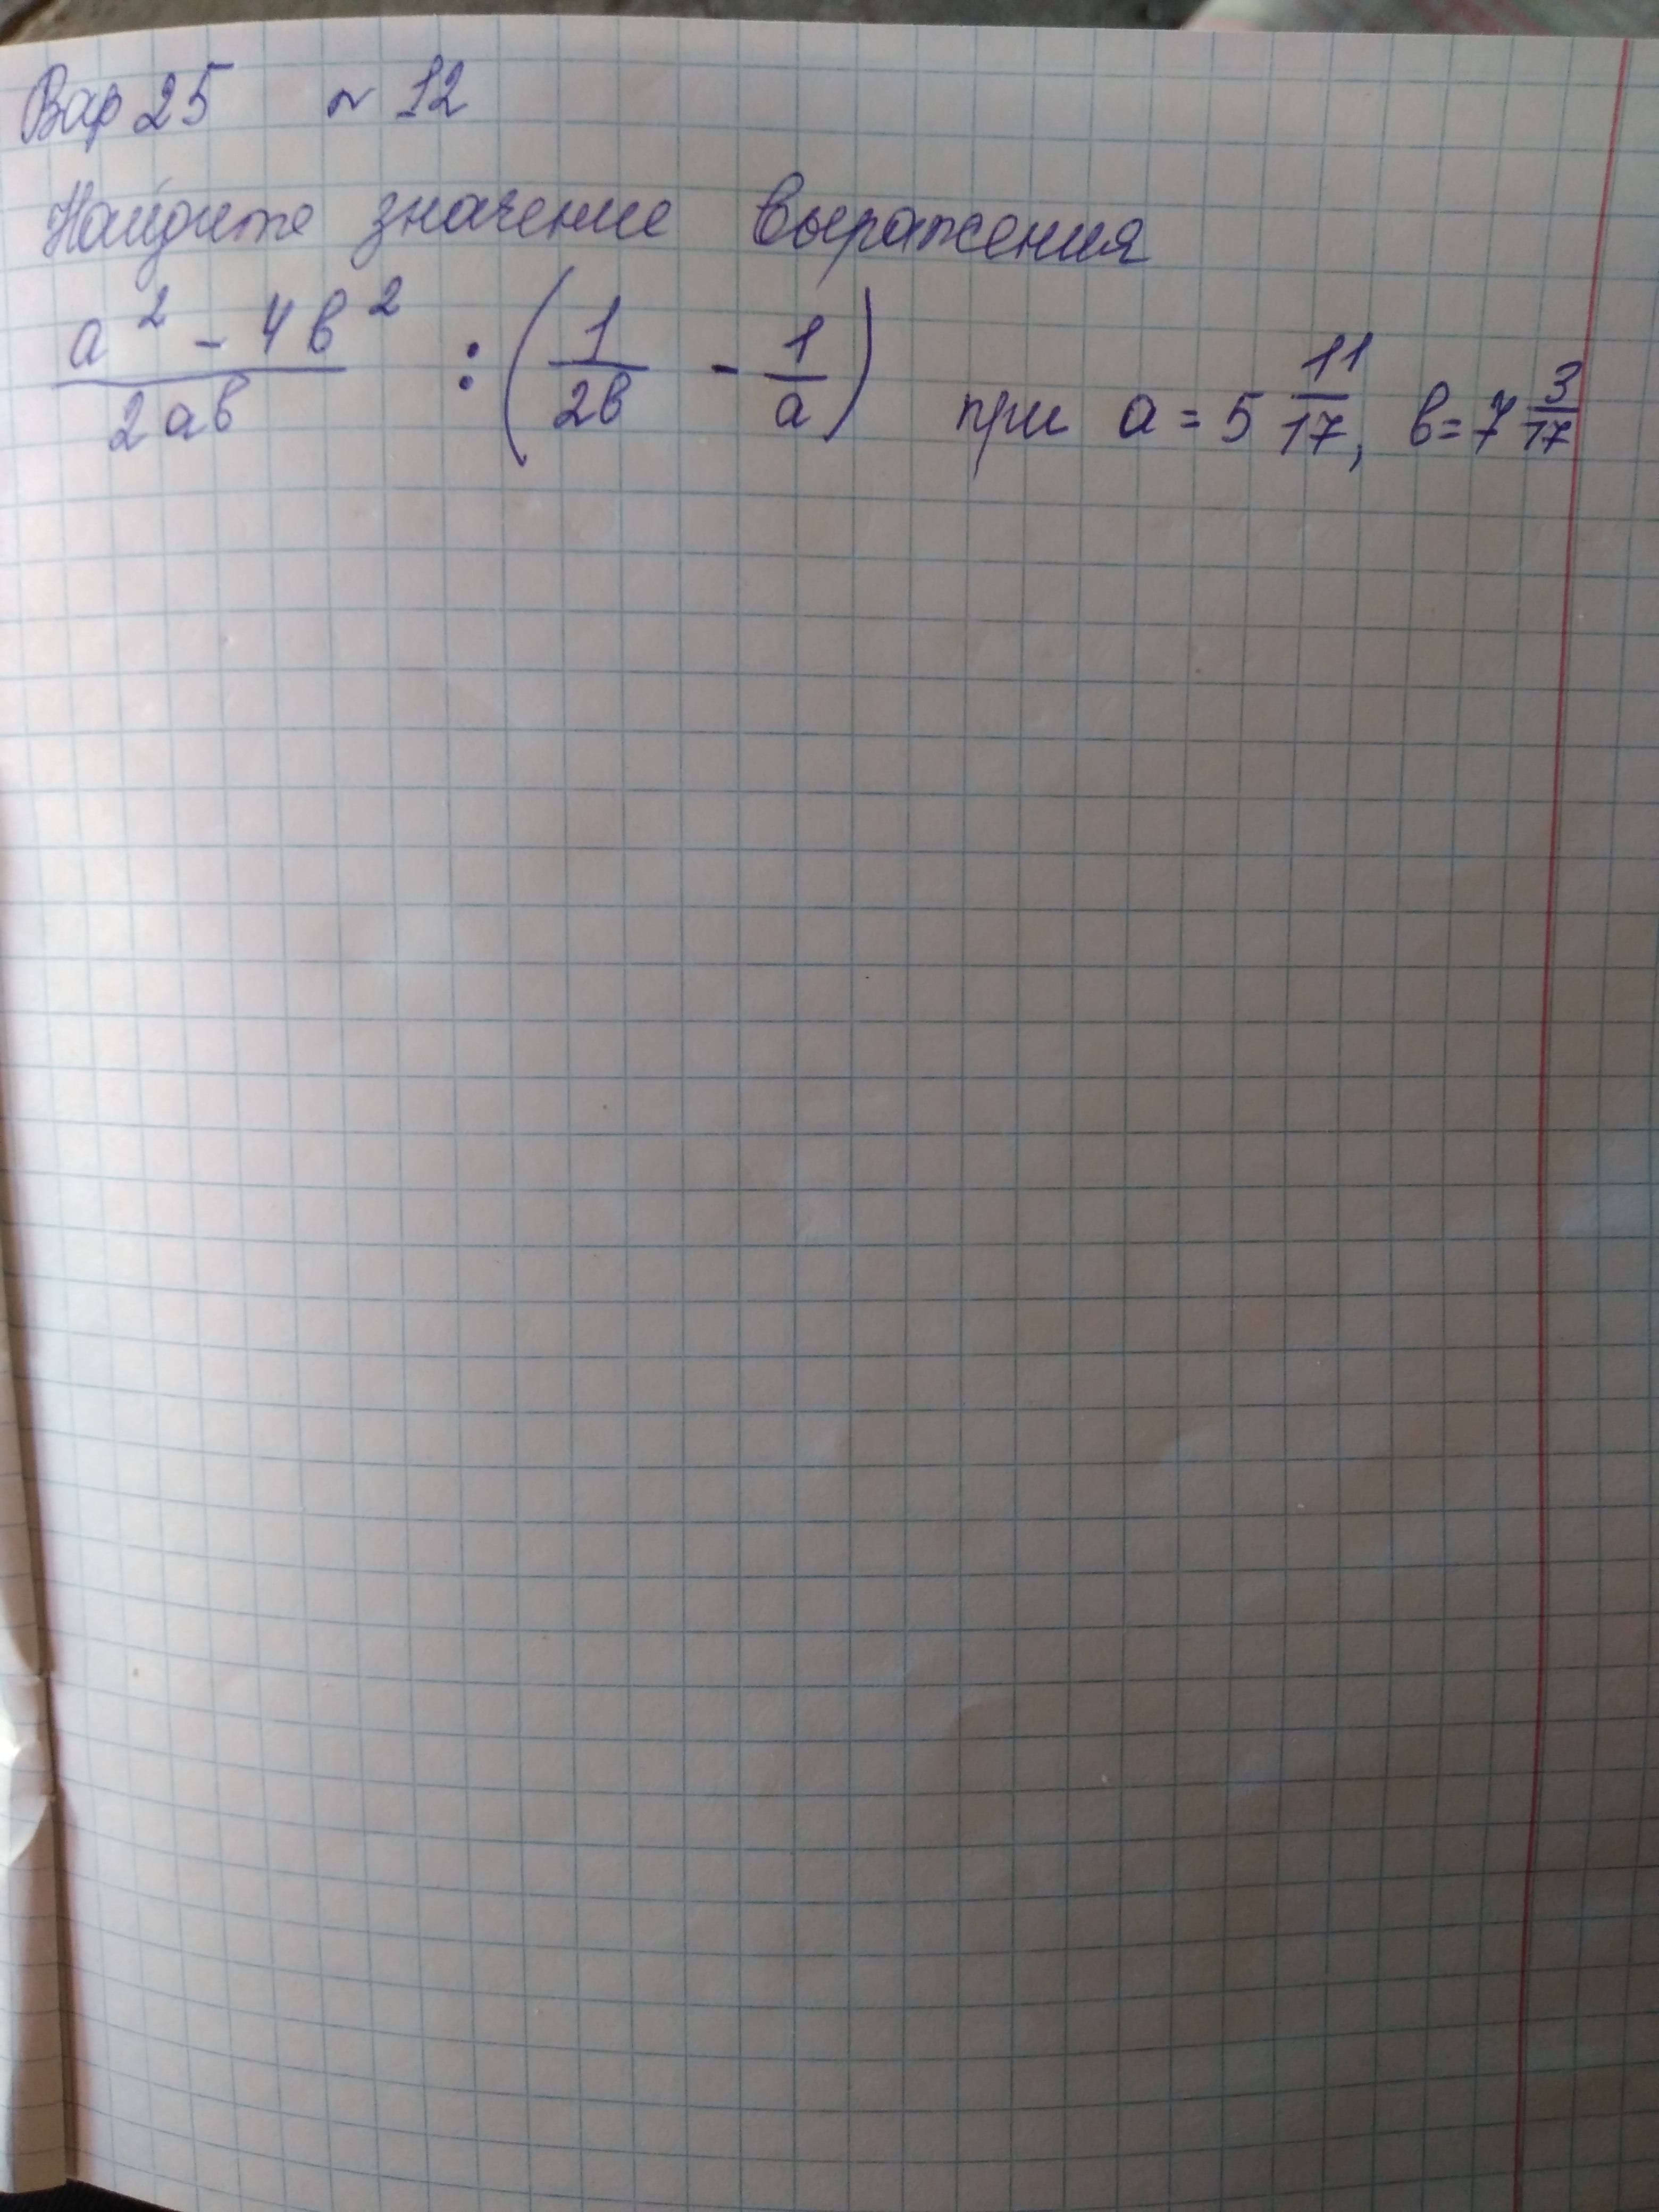 Вар 25 ~ 12
Найдите значение выражения
(a² - 4b²)/(2ab) : (1/(2b) - 1/a) при a = 5 11/17, b = 7 3/17